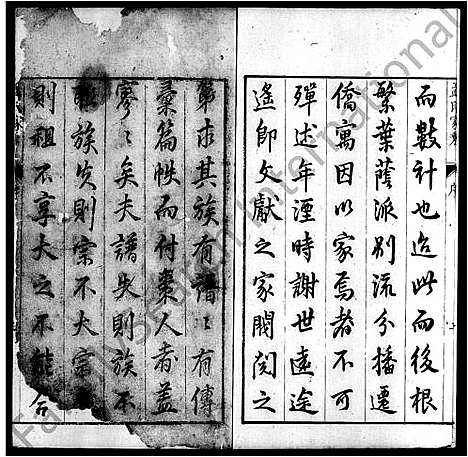 而數計也迨此而後根
繁葉蔭派別流分播遷
僑寓因以家焉者不可
殫述年湮時謝世遠途
遙即文獻之家閥閱之
第求其族有譜〻有傳
彙篇帙而付棗人者蓋
寥〻矣夫譜失則族不
族失則宗不大宗
則祖不享夫之不能合
序
Family Search International